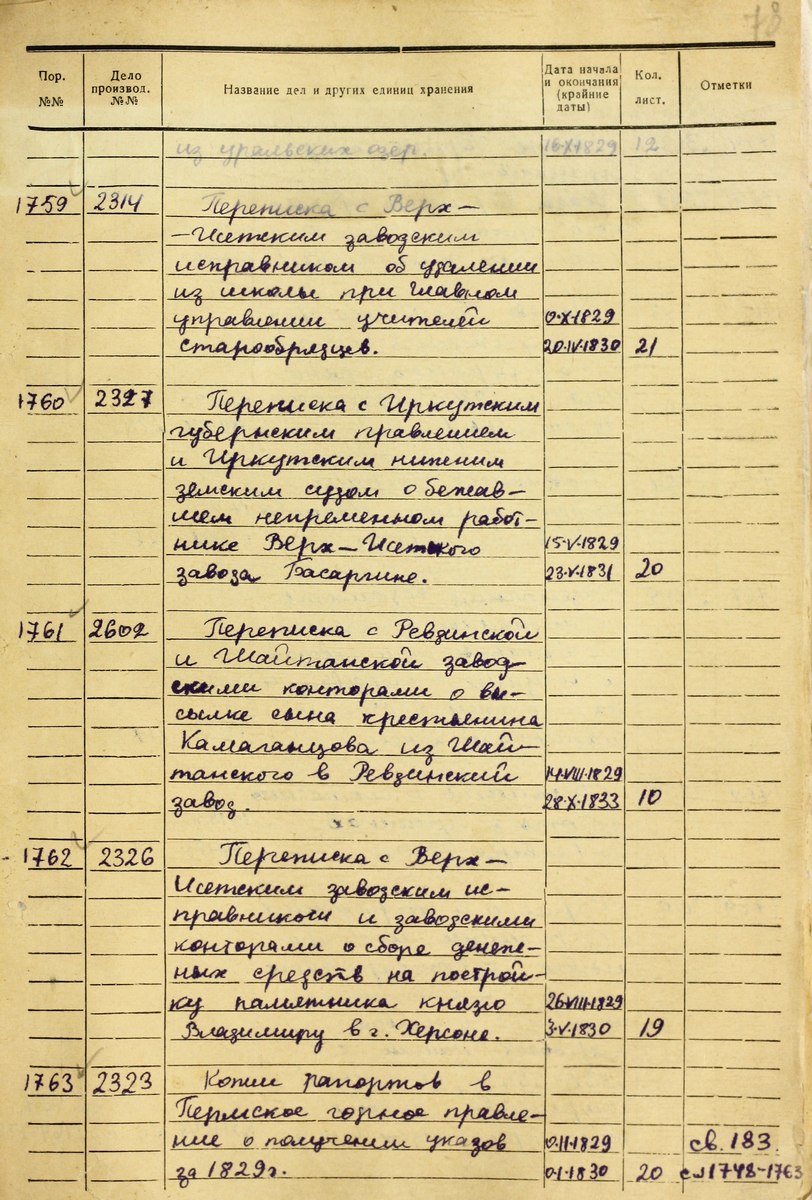 78
Пор. №№ Дело производ. №№ Название дел и других единиц хранения Дата начала и окончания (крайние даты) Кол. лист. Отметки
из уральских озер. 16-X-1829 12
1759 2314 Переписка с Верх-
-Исетским заводским
исправником об удалении
из школы при Главном
управлении учителей 0-X-1829
старообрядцев. 20-IV-1830 21
1760 2327 Переписка с Иркутским
губернским правлением
и Иркутским нижним
земским судом о бежав-
шем непременном работ-
нике Верх-Исетского 15-V-1829
завода Басаргине. 23-V-1831 20
1761 2602 Переписка с Ревдинской
и Шайтанской завод-
скими конторами о вы-
сылке сына крестьянина
Камаганцова из Шай-
танского в Ревдинский 14-VIII-1829
завод. 28-X-1833 10
1762 2326 Переписка с Верх-
Исетским заводским ис-
правником и заводскими
конторами о сборе денеж-
ных средств на построй-
ку памятника князю 26-VIII-1829
Владимиру в г. Херсоне. 3-V-1830 19
1763 2323 Копии рапортов в
Пермское горное правле-
ние о получении указов 0-II-1829 св. 183.
за 1829г. 0-I-1830 20 с 1748-1763